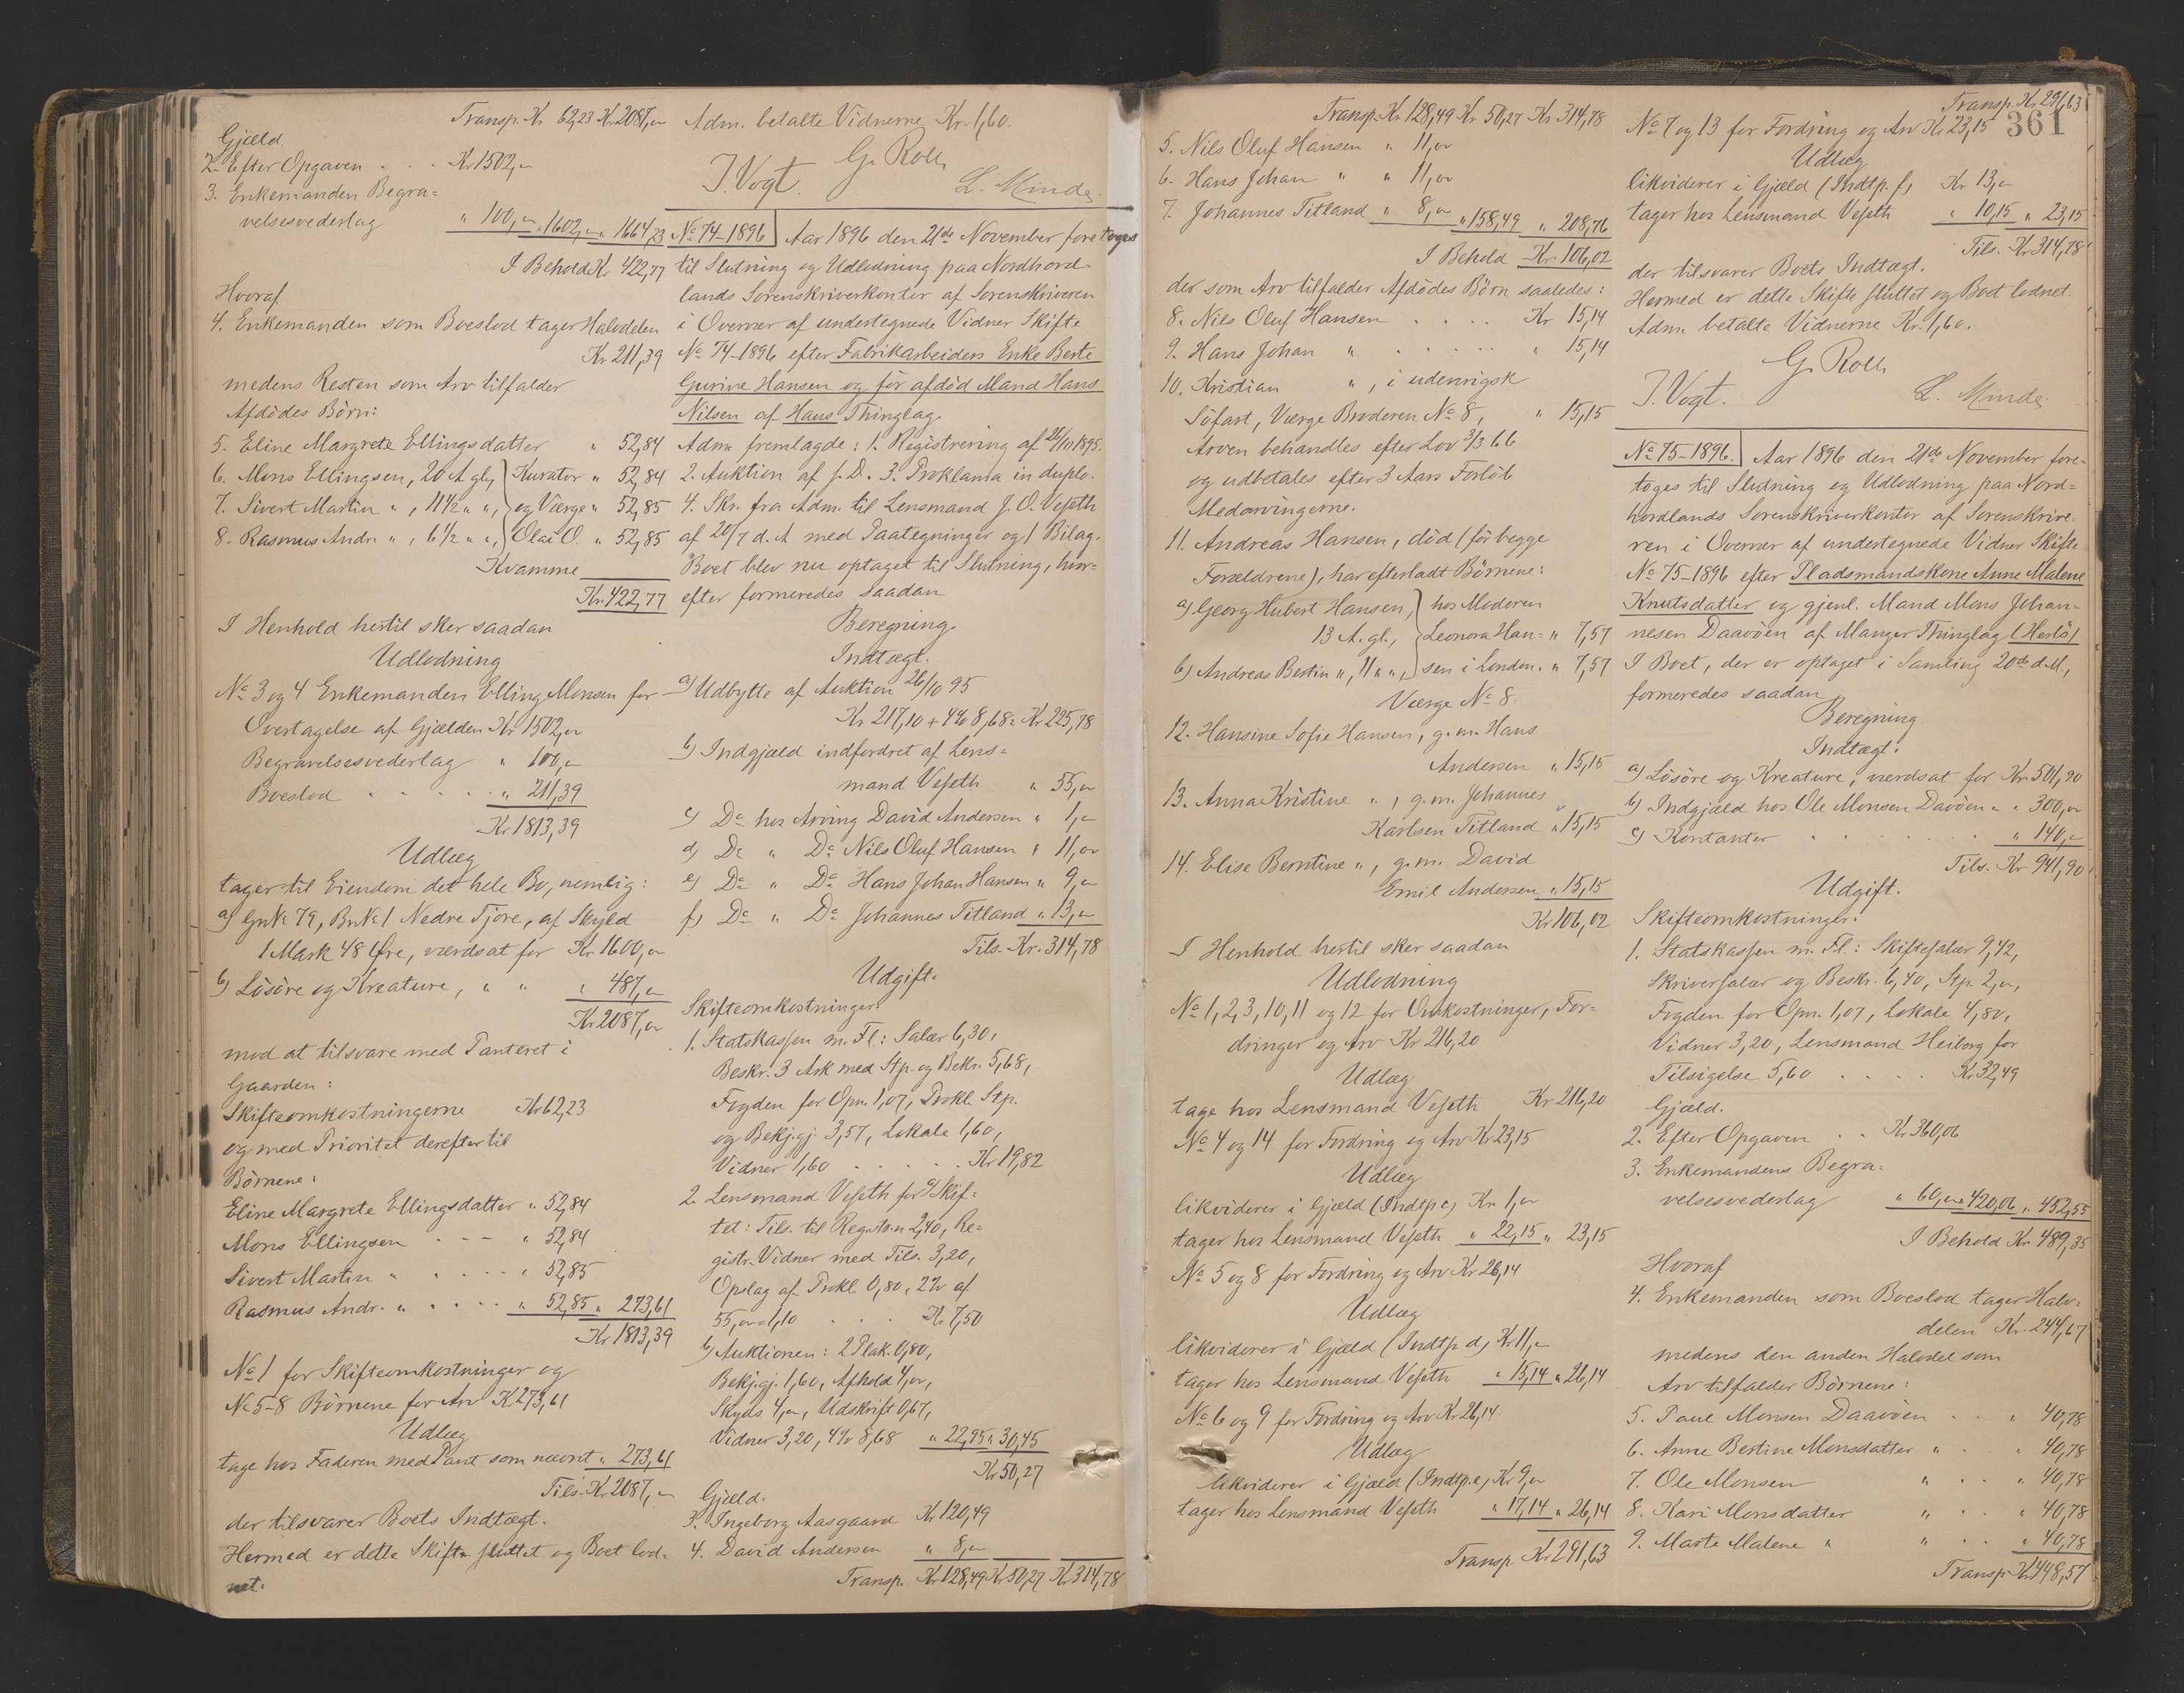 Transp. Kr 62,23 Kr 2087,„
Gjæld.
2. Efter Opgaven . . . Kr 1502,„
3. Enkemanden Begra=
velsesvederlag „ 100,„ „ 1602,„ „ 1664,23
I Behold Kr 422,77
Hvoraf
4. Enkemanden som Boeslod tager Halvdelen
Kr. 211,39
medens Resten som Arv tilfalder
Afdödes Börn:
5. Eline Margrete Ellingsdatter „ 52,84
6. Mons Ellingsen, 20 A. gl, Kurator „ 52,84
7. Sivert Martin „ , 11½ „ „, og Værge „ 52,85
8. Rasmus Andr. „ , 6½ „ „, Olai O. „ 52,85
Kvamme
Kr. 422,77
I Henhold hertil sker saadan
Udlodning
No 3 og 4 Enkemanden Elling Monsen for
Overtagelse af Gjælden Kr 1502,„
Begravelsesvederlag „ 100,„
Boeslod . . . . . „ 211,39
Kr 1813,39
Udlæg
tager til Eiendom det hele Bo, nemlig:
a) GnNo 79, BnNo 1 Nedre Tjore, af Skyld
1 Mark 48 Øre, værdsat for Kr. 1600,„
b) Lösöre og Kreature, „ „ „ 487,„
Kr 2087,„
mod at tilsvare med Panteret i
Gaarden:
Skifteomkostningerne Kr 62,23
og med Prioritet derefter til
Börnene:
Eline Margrete Ellingsdatter „ 52,84
Mons Ellingsen - - - „ 52,84
Sivert Martin „ . . . . „ 52,85
Rasmus Andr. „ . . . . „ 52,85 „ 273,61
Kr 1813,39
No 1 for Skifteomkostninger og
No 5-8 Börnene for Arv K 273,61
Udlæg
tage hos Faderen med Pant som nævnt „ 273,61
Tils. Kr 2087,„
der tilsvarer Boets Indtægt.
Hermed er dette Skifte sluttet og Boet lod-
net.
Adm. betalte Vidnerne Kr. 1,60.
G. Roll
J. Vogt. L. Minde.
No 74-1896 Aar 1896 den 21de November foretoges
til Slutning og Udlodning paa Nordhord-
lands Sorenskriverkontor af Sorenskriveren
i Overvær af undertegnede Vidner Skifte
No 74-1896 efter Fabrikarbeiders Enke Berte
Gurine Hansen og för afdöd Mand Hans
Nilsen af Haus Thinglag.
Adm. fremlagde: 1. Registrering af 26/10 1895.
2. Auktion af s. D. 3. Proklama in duplo.
4. Skr. fra Adm. til Lensmand J. O. Veseth
af 20/7 d. A med Paategninger og 1 Bilag.
Boet blev nu optaget til Slutning, hvor=
efter formeredes saadan
Beregning.
Indtægt.
a) Udbytte af Auktion 26/10 95
Kr. 217,10 + 4% 8,68 = Kr 225,78
b) Indgjæld indfordret af Lens=
mand Veseth „ 55,„
c) Do hos Arving David Andersen „ 1,„
d) Do „ Do Nils Oluf Hansen „ 11,„
e) Do „ Do Hans Johan Hansen „ 9,„
f) Do „ Do Johannes Titland „ 13,„
Tils. Kr. 314,78
Udgift.
Skifteomkostninger.
1. Statskassen m. Fl: Salær 6,30,
Beskr. 3 Ark med Stp. og Bekr. 5,68,
Fogden for Opn. 1,07, Prokl. Stp.
og Bekj.gj. 3,57, Lokale 1,60,
Vidner 1,60 . . . . . Kr 19,82
2. Lensmand Veseth for a) Skif-
tet: Tils. til Regist.n 2,40, Re=
gistr. Vidner med Tils. 3,20,
Opslag af Prokl 0,80, 2% af
55,„ = 1,10 . . . Kr 7,50
b) Auktionen: 2 Plak. 0,80,
Bekj.gj. 1,60, Afhold 4,„,
Skyds 4,„, Udskrift 0,67,
Vidner 3,20, 4% 8,68 „ 22,95 „ 30,45
Kr 50,27
Gjæld.
3. Ingeborg Aasgaard Kr 120,49
4. David Andersen „ 8,„
Transp. Kr 128,49 Kr 50,27 Kr 314,78
Transp. Kr 128,49 Kr 50,27 Kr 314,78
5. Nils Oluf Hansen „ 11,„
6. Hans Johan „ „ 11,„
7. Johannes Titland „ 8,„ „ 158,49 „ 208,76
I Behold Kr. 106,02
der som Arv tilfalder Afdödes Börn saaledes:
8. Nils Oluf Hansen . . . . Kr 15,14
9. Hans Johan „ . . . . . „ 15,14
10. Kristian „ , i udenrigsk
Söfart, Værge Broderen No 8, „ 15,15
Arven behandles efter Lov 3/3 66
og udbetales efter 3 Aars Forlöb
Medarvingerne.
11. Andreas Hansen, död (för begge
Forældrene), har efterladt Börnene:
a) Georg Hubert Hansen, hos Moderen
13 A. gl., Leonora Han= „ 7,57
b) Andreas Bestin „, 11 „ „, sen i London. „ 7,57
Værge No 8.
12. Hansine Sofie Hansen, g. m. Hans
Andersen „ 15,15
13. Anna Kristine „ , g. m. Johannes
Karlsen Titland „ 15,15
14. Elise Berntine „, g. m. David
Emil Andersen „ 15,15
Kr 106,02
I Henhold hertil sker saadan
Udlodning
No 1, 2, 3, 10, 11 og 12 for Omkostninger, For=
dringer og Arv Kr 216,20
Udlæg
tage hos Lensmand Veseth Kr 216,20
No 4 og 14 for Fordring og Arv Kr 23,15
Udlæg
likviderer i Gjæld (Indtp c) Kr. 1,„
tager hos Lensmand Veseth „ 22,15 „ 23,15
No 5 og 8 for Fordring og Arv Kr 26,14
Udlæg
likviderer i Gjæld (Indtp d) Kr 11,„
tager hos Lensmand Veseth „ 15,14 „ 26,14
No 6 og 9 for Fordring og Arv Kr 26,14.
Udlæg
likviderer i Gjæld (Indtp. e) Kr 9,„
tager hos Lensmand Veseth „ 17,14 „ 26,14
Transp. Kr 291,63
Transp. Kr 291,63
361
No 7 og 13 for Fordring og Arv Kr 23,15
Udlæg
likviderer i Gjæld (Indtp. f) Kr 13,„
tager hos Lensmand Veseth „ 10,15 „ 23,15
Tils. Kr 314,78
der tilsvarer Boets Indtægt.
Hermed er dette Skifte sluttet og Boet lodnet.
Adm. betalte Vidnerne Kr. 1,60.
G. Roll
J. Vogt. L. Minde.
No 75-1896. Aar 1896 den 21de November fore-
toges til Slutning og Udlodning paa Nord=
hordlands Sorenskriverkontor af Sorenskrive-
ren i Overvær af undertegnede Vidner Skifte
No 75-1896 efter Pladsmandskone Anne Malene
Knutsdatter og gjenl. Mand Mons Johan-
nesen Daavöen af Manger Thinglag (Herlö)
I Boet, der er optaget i Samling 20de d. M,
formeredes saadan
Beregning
Indtægt.
a) Lösöre og Kreature, værdsat for Kr. 501,90
b) Indgjæld hos Ole Monsen Davöen „ „ 300,„
c) Kontanter . . . . . . . „ 140,„
Tils. Kr 941,90
Udgift.
Skifteomkostninger.
1. Statskassen m. Fl: Skiftesalær 9,42,
Skriversalær og Beskr. 6,40, Stp. 2,„,
Fogden for Opn. 1,07, Lokale 4,80,
Vidner 3,20, Lensmand Heiberg for
Tilsigelse 5,60 . . . . . Kr 32,49
Gjæld.
2. Efter Opgaven . . Kr 360,06
3. Enkemandens Begra=
velsesvederlag „ 60,„ „ 420,06 „ 452,55
I Behold Kr 489,35
Hvoraf
4. Enkemanden som Boeslod tager Halv-
delen Kr. 244,67
medens den anden Halvdel som
Arv tilfalder Börnene:
5. Paul Monsen Daavöen . . „ 40,78
6. Anne Bertine Monsdatter „ . . „ 40,78
7. Ole Monsen „ . . „ 40,78
8. Kari Monsdatter „ . . „ 40,78
9. Marte Malene „ „ . . „ 40,78
Transp. Kr 448,57